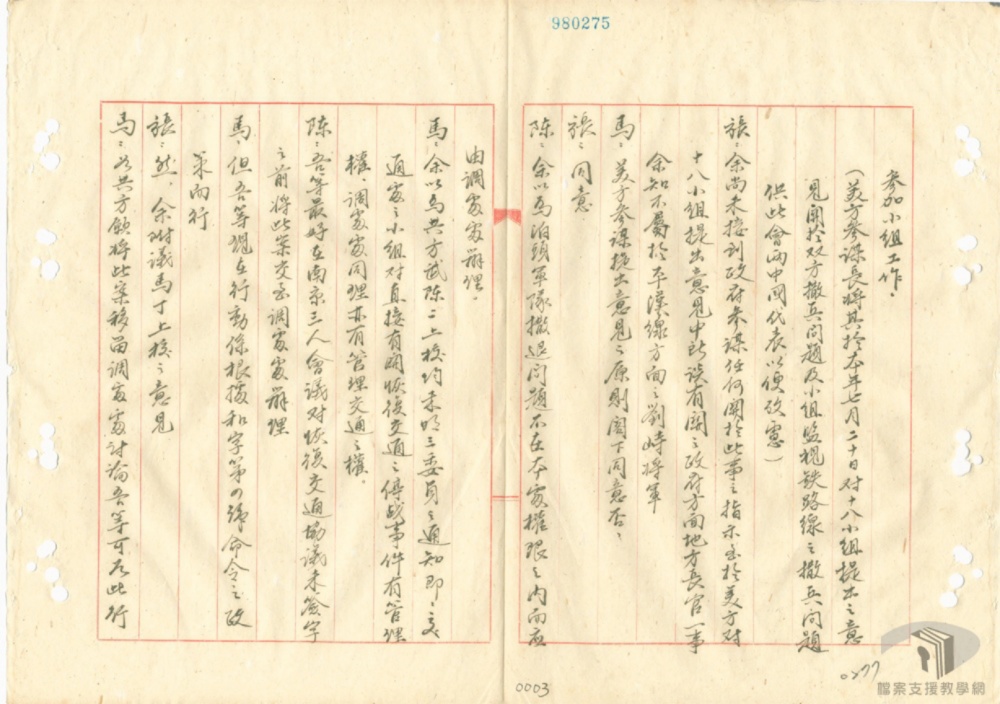 980275
參加小組工作。
(美方參謀長將其於本年七月二十日对十八小組提出之意
見關於双方撤兵問題及小組监視铁路線之撤兵問題
供此會兩中國代表以便攷慮)
張：余尚未接到政府參謀任何關於此事之指示至於美方对
十八小組提出意見中所談有關之政府方面地方長官一事
余知不屬於平漢線方面之劉峙將軍
馬：美方參謀提出意見之原則閣下同意否：
張：同意
陳：余以為泊頭軍隊撤退问题不在本處權限之内而应
由調處處辦理。
馬：余以為共方武陳二上校均未明三委員之通知即：交
通處之小組对直接有關恢復交通之停战事件有管理
權，調處處同理亦有管理交通之權。
陳：吾等最好在南京三人會議对恢復交通協議未簽字
之前將此案交至調處處辦理
馬：但吾等現在行動係根據和字第四號命令之政
策而行
張：然，余附議馬丁上校之意見
馬：若共方願將此案移留調處處討論吾等可尽此行
0277
0003
檔案支援教學網